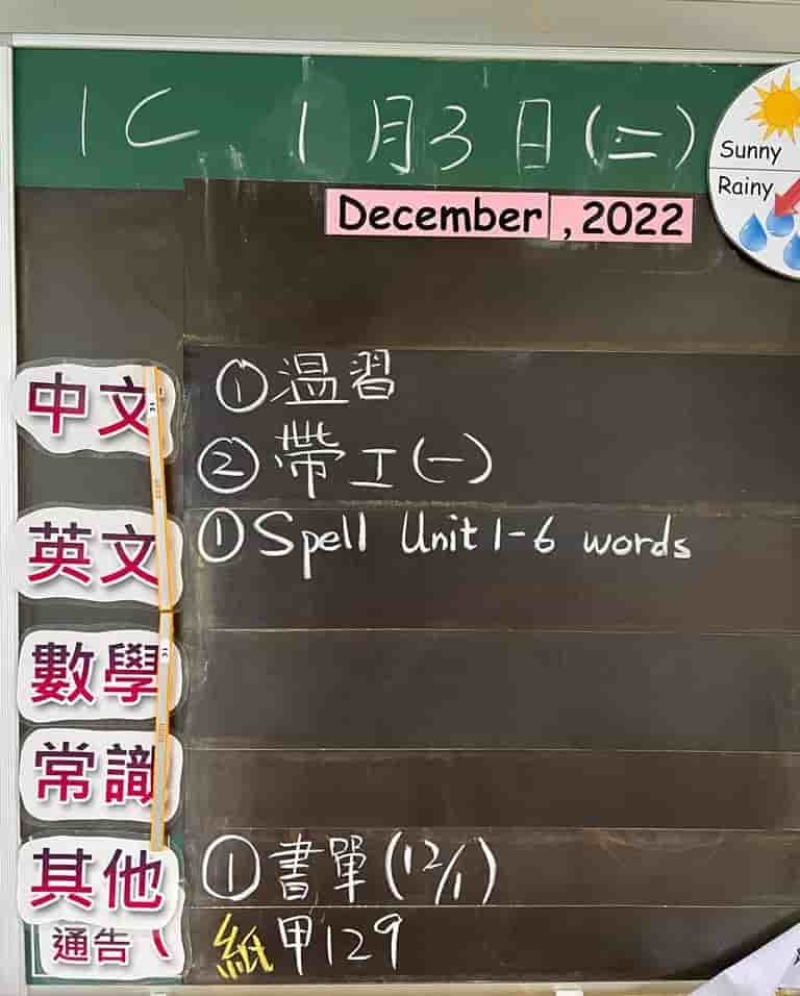 1C 1月3日(二)
Sunny
Rainy
December , 2022
中文 ①温習
②帶工(一)
英文 ①Spell Unit 1-6 words
數學
常識
其他 ①書單(12/1)
通告 紙甲129